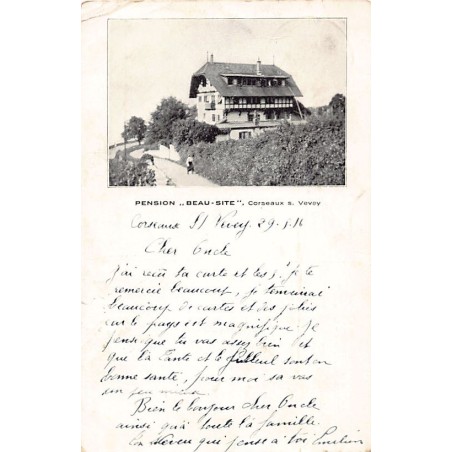 PENSION „BEAU-SITE", Corseaux s. Vevey
Corseaux s/ Vevey 29.1.16
Cher Oncle
j'ai reçu ta carte et les j. je te
remercie beaucoup, je
beaucoup de cartes et des jolies
car le pays est magnifique je
pense que tu vas assez bien et
que la Tante et le filleul sont en
bonne santé, pour moi sa vas
un peu mieux
Bien le bonjour cher Oncle
ainsi qu'à toute la famille.
Ton neveu qui pense à toi Emilien